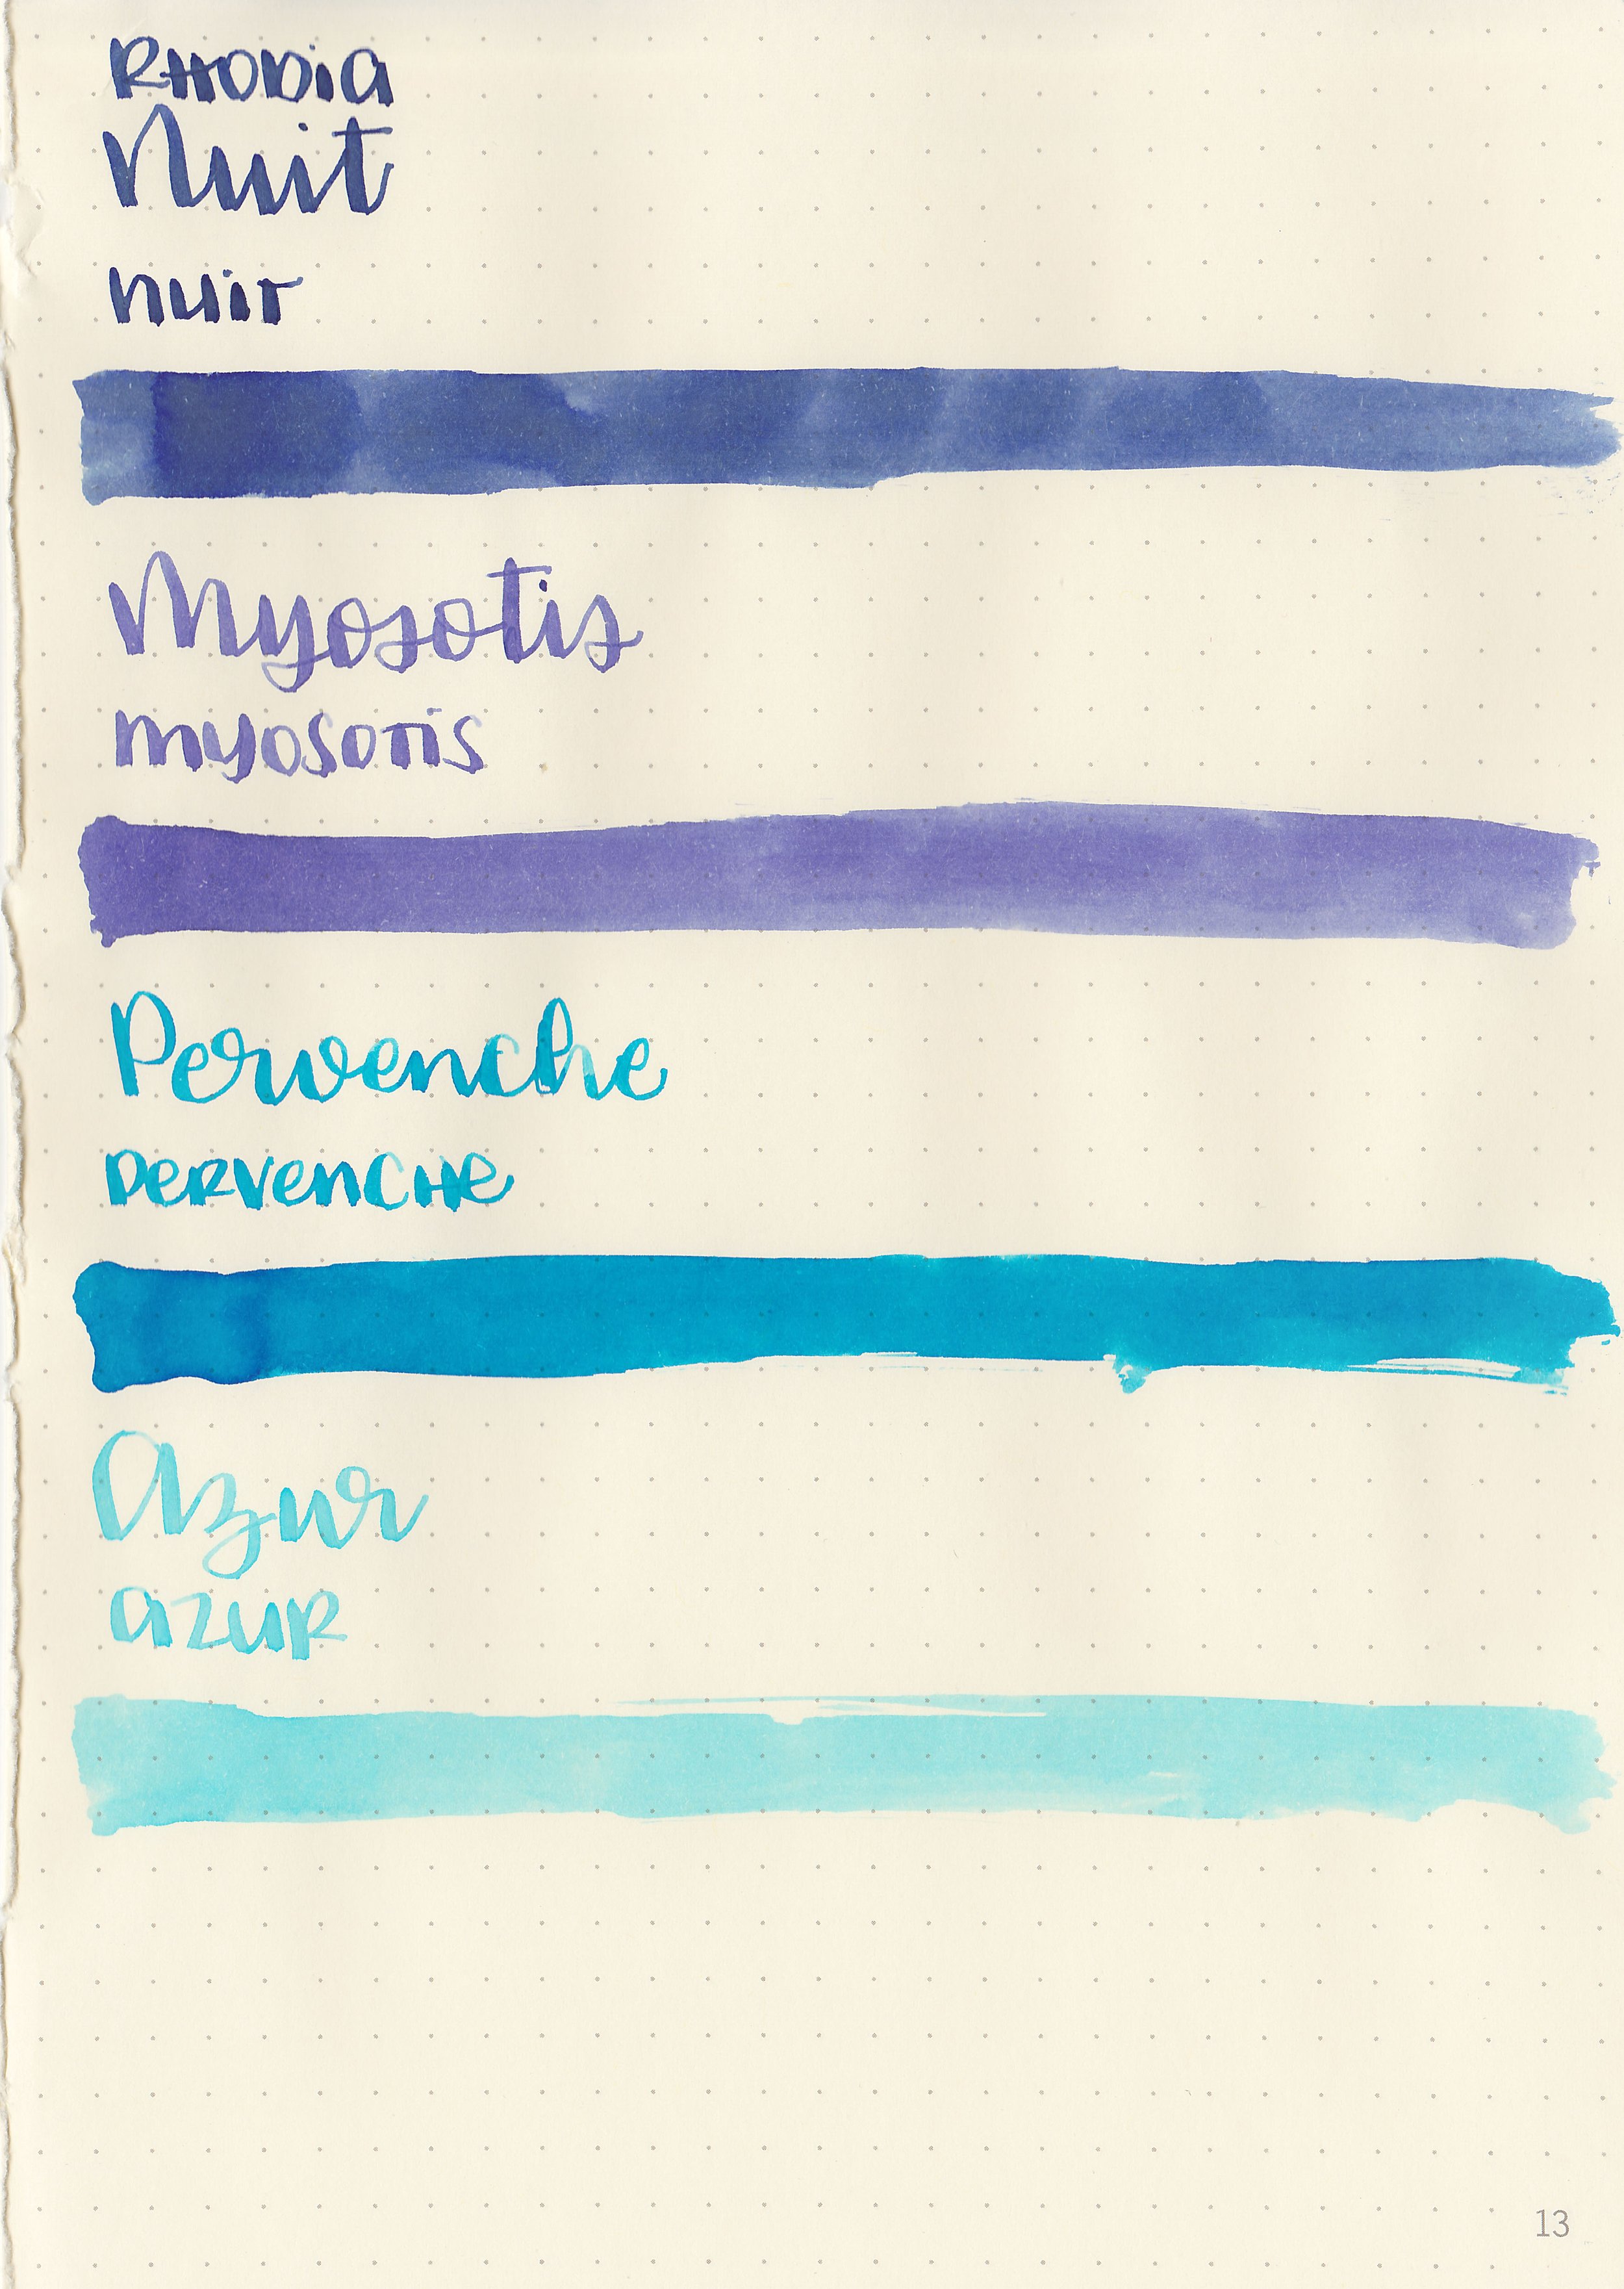 RHODIA
Nuit
nuit
Myosotis
myosotis
Pervenche
pervenche
Azur
azur
13